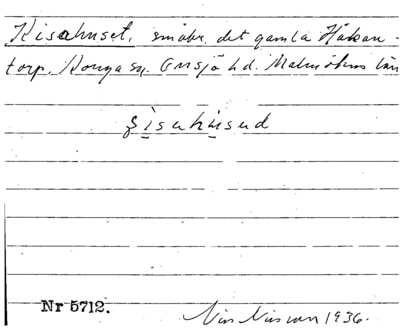 Kisahuset, småbr. det gamla Håkan-
torp, Konga sn. Onsjö hd. Malmöhus län
Nr 5712.
Nils Nilsson 1936.